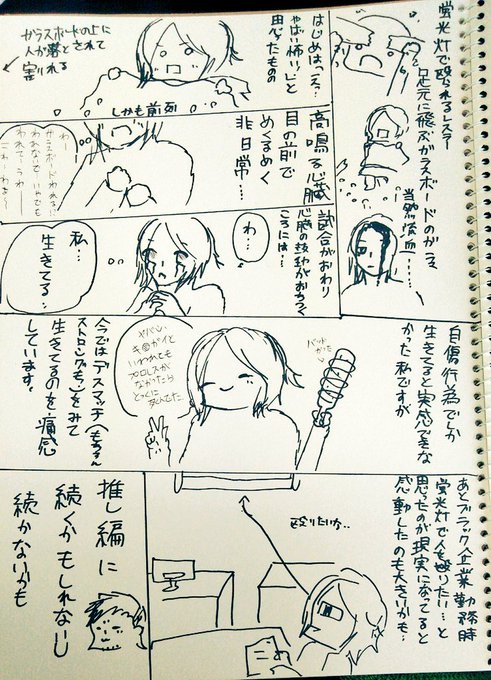 蛍光灯で殴られるレスラー
足元に飛ぶガラスボードのかけら
当然流血……
はじめは「えっ?
やばい怖い!」と
思ったものの
ガラスボードの上に
人が落とされて
割れる
しかも前列
高鳴る心臓
目の前で
めくるめく
非日常…
わ…
試合がおわり
心臓の鼓動がおちつく
ころには…
わ…
私…
生きてる…
自傷行為でしか
生きてると実感できな
かった私ですが
バット
かった
ヤバい
キ@ガイと
いわれても
プロレスが
なかったら
とっくに
死んでた。
今ではデスマッチ(もちろん
ストロングも)をみて
生きてるのを痛感
しています。
あとブラック企業勤務時
蛍光灯で人を殴りたい…と
思ったのが現実になってると
感動したのも大きいかも…
殴りたいな…
推し編に
続くかもしれないし
続かないかも